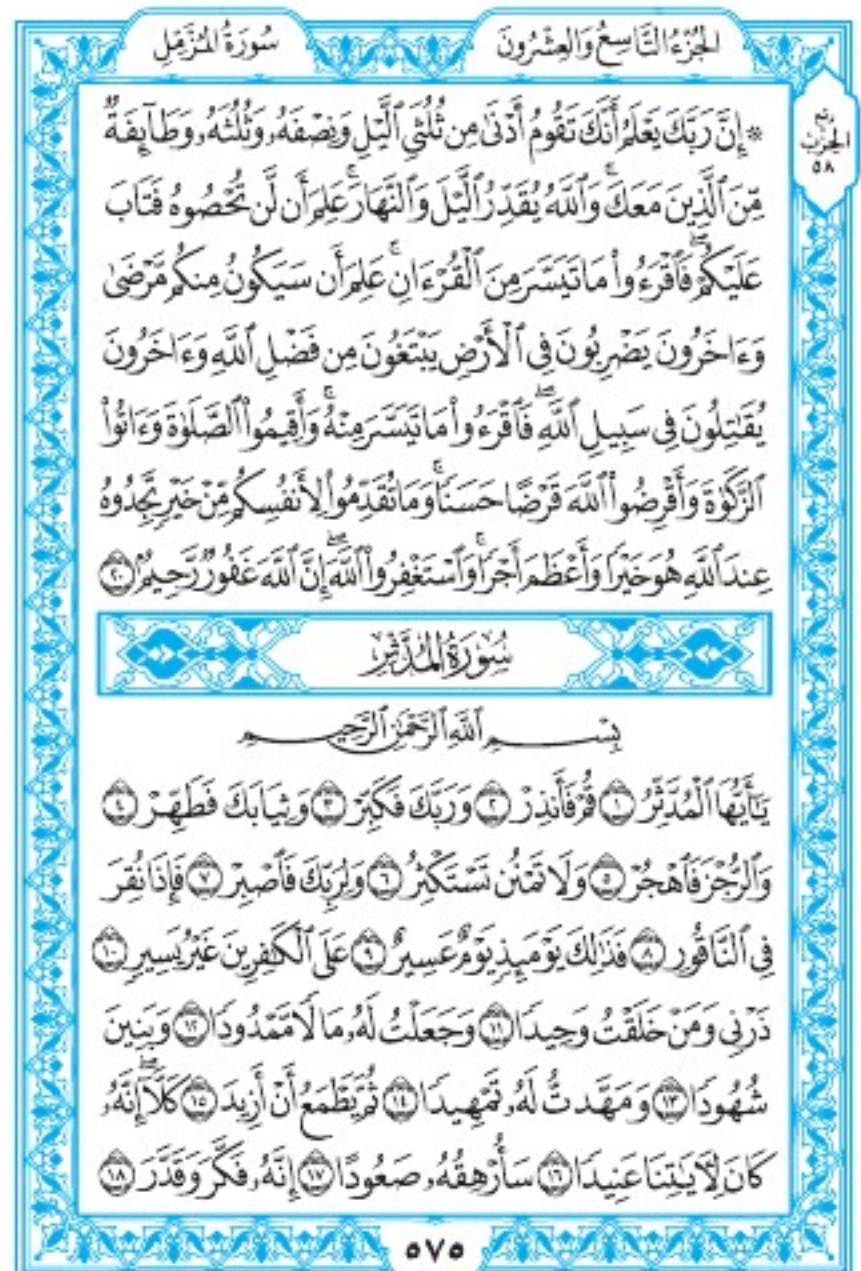 الجُزْءُ التَّاسِعُ وَالعِشْرُونَ
سُورَةُ المُزَّمِّل
ربع
الحزب
٥٨
۞ إِنَّ رَبَّكَ يَعْلَمُ أَنَّكَ تَقُومُ أَدْنَىٰ مِن ثُلُثَيِ ٱلَّيْلِ وَنِصْفَهُۥ وَثُلُثَهُۥ وَطَآئِفَةٌ
مِّنَ ٱلَّذِينَ مَعَكَۚ وَٱللَّهُ يُقَدِّرُ ٱلَّيْلَ وَٱلنَّهَارَۚ عَلِمَ أَن لَّن تُحْصُوهُ فَتَابَ
عَلَيْكُمْۖ فَٱقْرَءُوا۟ مَا تَيَسَّرَ مِنَ ٱلْقُرْءَانِۚ عَلِمَ أَن سَيَكُونُ مِنكُم مَّرْضَىٰ
وَءَاخَرُونَ يَضْرِبُونَ فِى ٱلْأَرْضِ يَبْتَغُونَ مِن فَضْلِ ٱللَّهِ وَءَاخَرُونَ
يُقَٰتِلُونَ فِى سَبِيلِ ٱللَّهِۖ فَٱقْرَءُوا۟ مَا تَيَسَّرَ مِنْهُۚ وَأَقِيمُوا۟ ٱلصَّلَوٰةَ وَءَاتُوا۟
ٱلزَّكَوٰةَ وَأَقْرِضُوا۟ ٱللَّهَ قَرْضًا حَسَنًاۚ وَمَا تُقَدِّمُوا۟ لِأَنفُسِكُم مِّنْ خَيْرٍ تَجِدُوهُ
عِندَ ٱللَّهِ هُوَ خَيْرًا وَأَعْظَمَ أَجْرًاۚ وَٱسْتَغْفِرُوا۟ ٱللَّهَۖ إِنَّ ٱللَّهَ غَفُورٌ رَّحِيمٌ ٢٠
سُورَةُ المُدَّثِّر
بِسْمِ ٱللَّهِ ٱلرَّحْمَٰنِ ٱلرَّحِيمِ
يَٰٓأَيُّهَا ٱلْمُدَّثِّرُ ١ قُمْ فَأَنذِرْ ٢ وَرَبَّكَ فَكَبِّرْ ٣ وَثِيَابَكَ فَطَهِّرْ ٤
وَٱلرُّجْزَ فَٱهْجُرْ ٥ وَلَا تَمْنُن تَسْتَكْثِرُ ٦ وَلِرَبِّكَ فَٱصْبِرْ ٧ فَإِذَا نُقِرَ
فِى ٱلنَّاقُورِ ٨ فَذَٰلِكَ يَوْمَئِذٍ يَوْمٌ عَسِيرٌ ٩ عَلَى ٱلْكَٰفِرِينَ غَيْرُ يَسِيرٍ ١٠
ذَرْنِى وَمَنْ خَلَقْتُ وَحِيدًا ١١ وَجَعَلْتُ لَهُۥ مَالًا مَّمْدُودًا ١٢ وَبَنِينَ
شُهُودًا ١٣ وَمَهَّدتُّ لَهُۥ تَمْهِيدًا ١٤ ثُمَّ يَطْمَعُ أَنْ أَزِيدَ ١٥ كَلَّآۖ إِنَّهُۥ
كَانَ لِءَايَٰتِنَا عَنِيدًا ١٦ سَأُرْهِقُهُۥ صَعُودًا ١٧ إِنَّهُۥ فَكَّرَ وَقَدَّرَ ١٨
٥٧٥